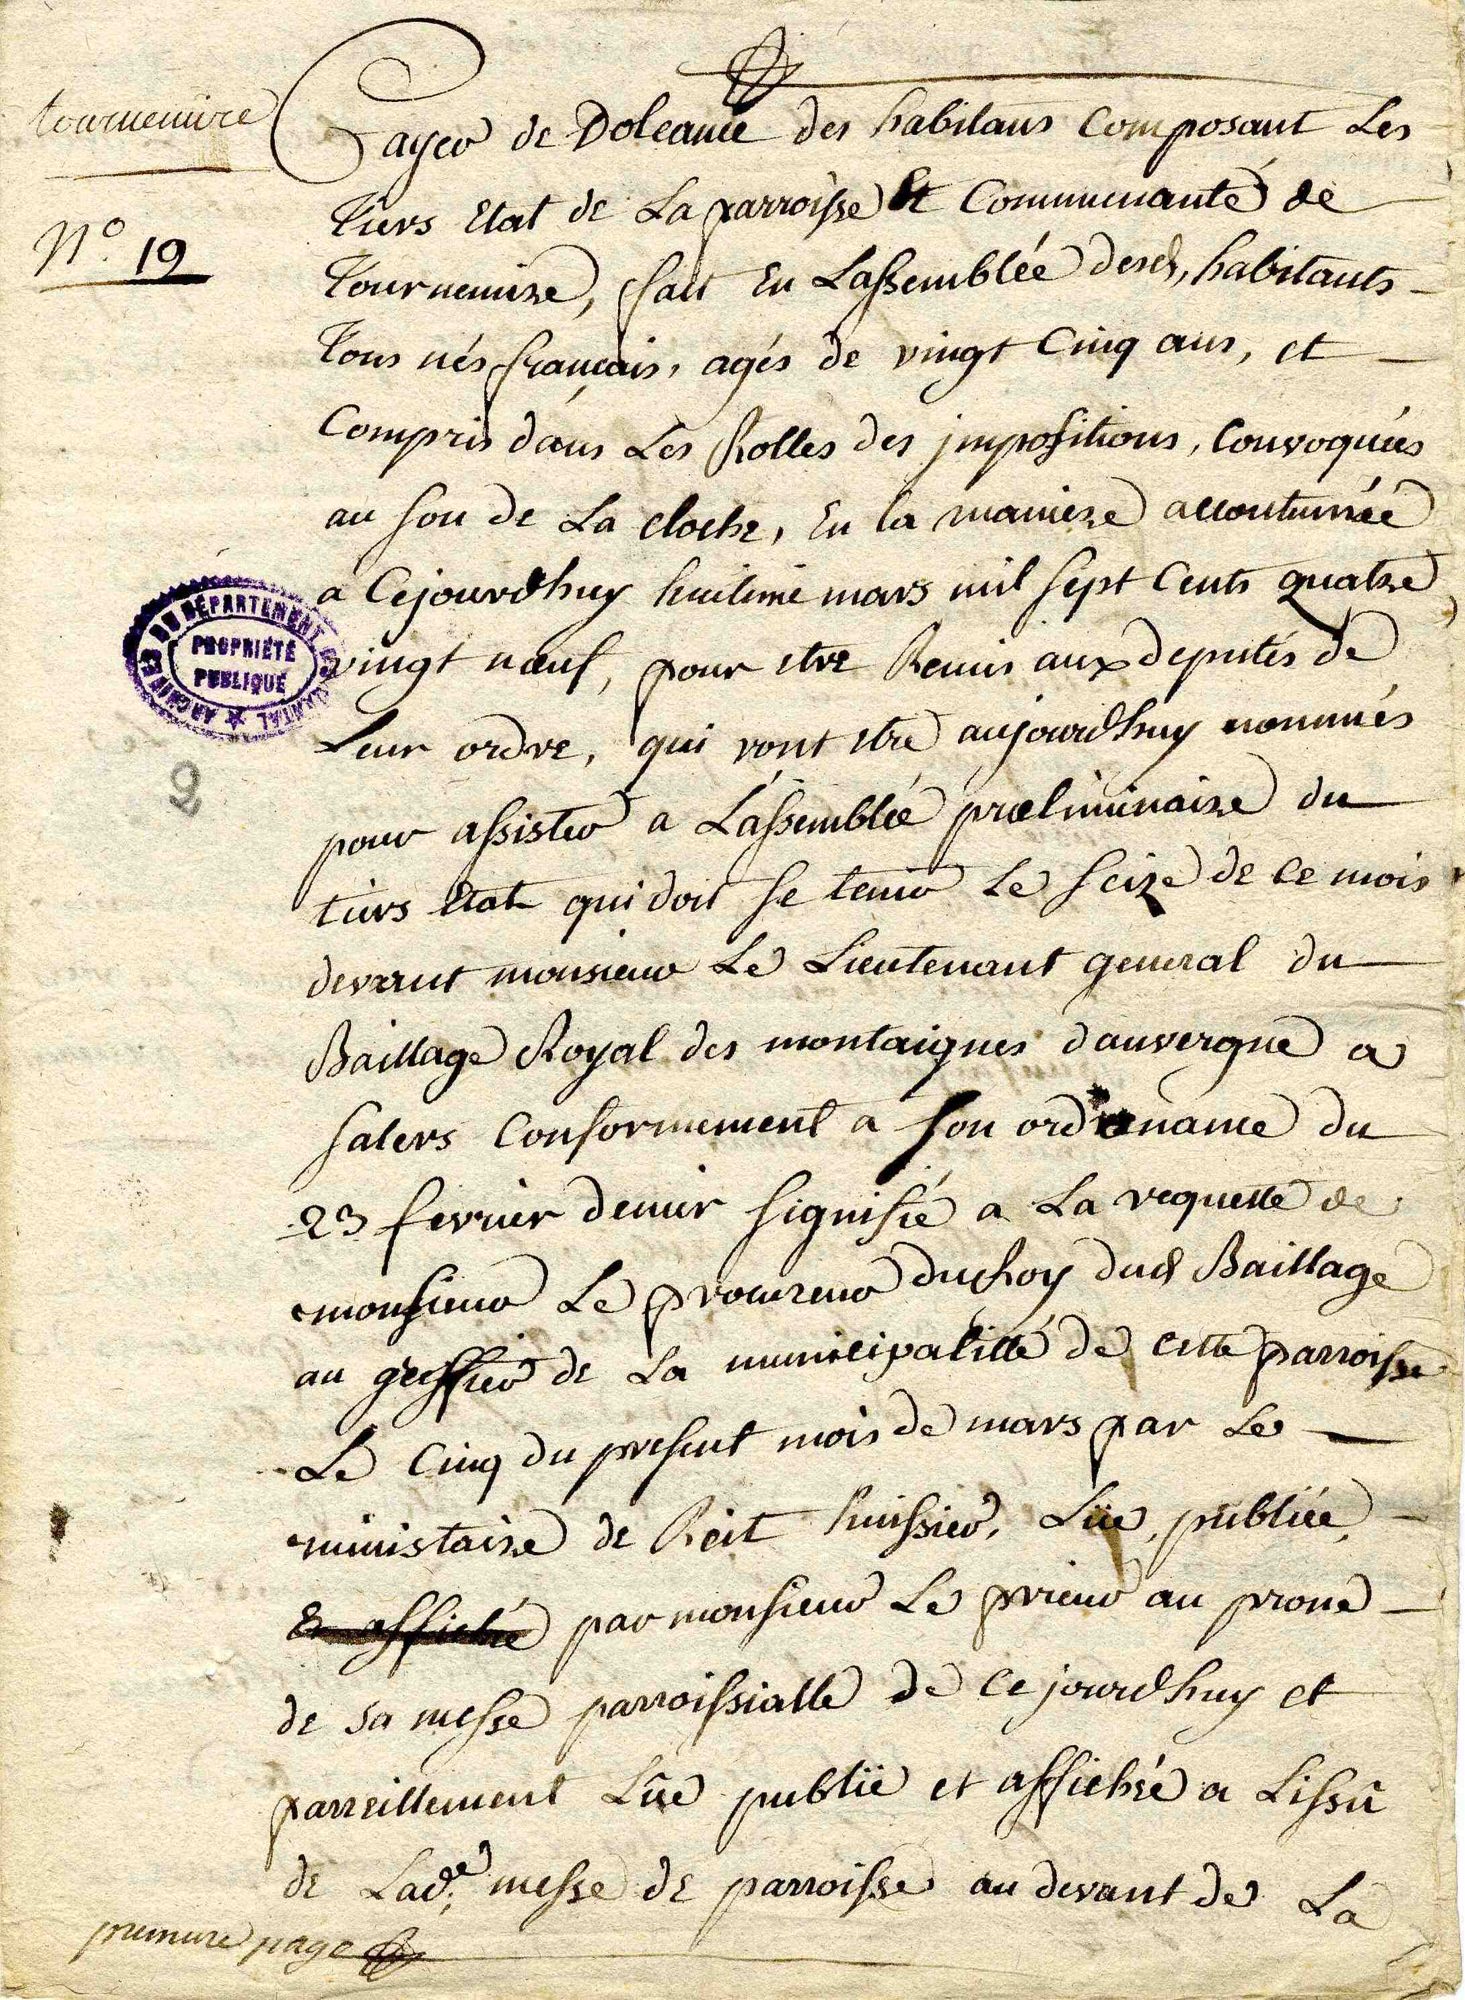 tournemire
N.o 19
Cayer de Doleance des habitans Composant Les
Tiers Etat de La parroisse Et Communauté de
Tournemire, fait En Lassemblée desd, habitants
Tous nés français, agés de vingt Cinq ans, et
Compris dans Les Rolles des jmpositions, Convoquées
au son de La cloche, En la maniere accoutumée
a Cejourdhuy huitime mars mil sept Cents quatre
vingt nœuf, pour etre Remis aux deputés de
Leur ordre, qui vont etre aujourdhuy nommés
pour assister a Lassemblée præliminaire du
tiers Etat qui doit se tenir Le seize de ce mois
devant monsieur Le Lieutenant general du
Baillage Royal des montaignes dauvergne a
salers Conformement a son ordonance du
23 fevrier dernier signifié a La requette de
monsieur Le procureur du Roy dud Baillage
au greffier de La municipalitté de cette parroisse
Le Cinq du present mois de mars par Le
ministaire de Reit huissier, Lüe, publiée,
Et affichée par monsieur Le prieur au prone
de sa messe parroissialle de ce jourdhuy et
parreillement Lûe publië et affichée a Lissû
de Lade. messe de parroisse au devant de La
premiere page
ARCHIVES DU DÉPARTEMENT DU CANTAL
PROPRIÉTÉ
PUBLIQUE
2